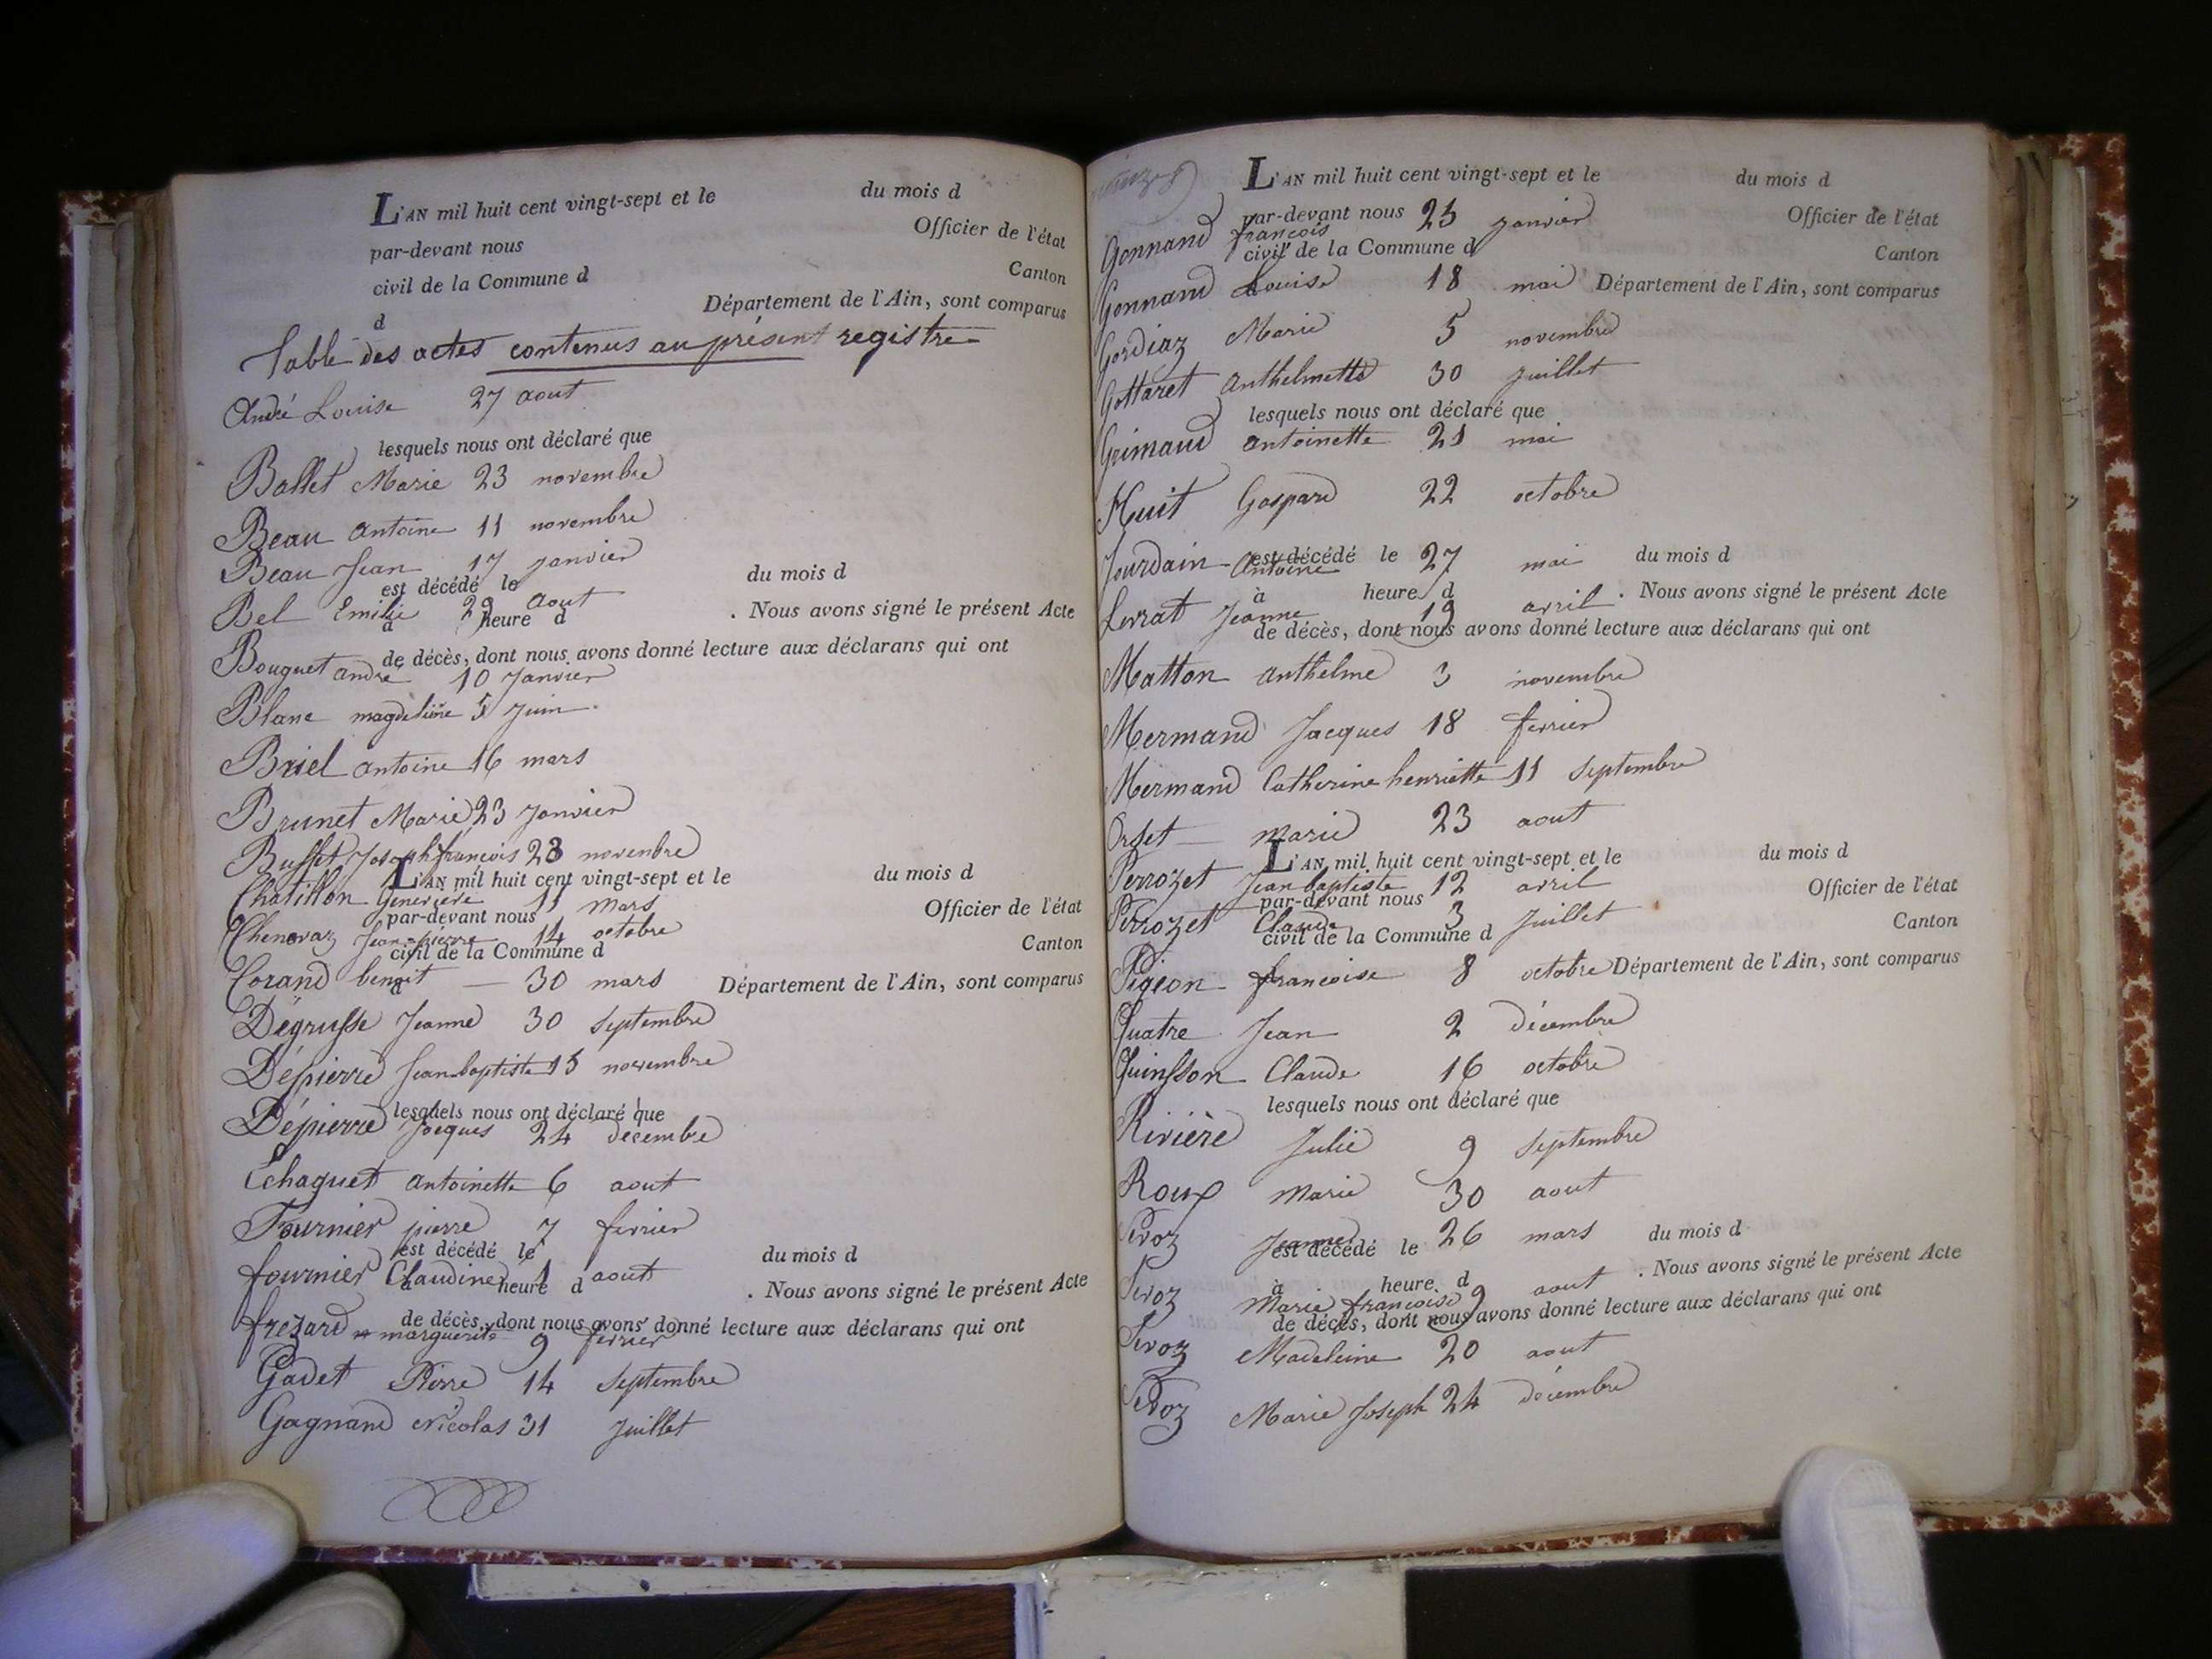 L'AN mil huit cent vingt-sept et le du mois d
par-devant nous Officier de l'état
civil de la Commune d Canton
d Département de l'Ain, sont comparus
Table des actes contenus au présent registre
André Louise 27 aout
lesquels nous ont déclaré que
Ballet Marie 23 novembre
Beau antoine 11 novembre
Beau Jean 17 janvier
est décédé le du mois d
Bel Emilie 29 aout
à heure d . Nous avons signé le présent Acte
de décès, dont nous avons donné lecture aux déclarans qui ont
Bouquet andre 10 Janvier
Blanc magdeleine 5 Juin
Briel antoine 16 mars
Brunet Marie 23 Janvier
Buffet Joseph françois 23 novembre
L'AN mil huit cent vingt-sept et le du mois d
Chatillon Genevieve 11 mars
par-devant nous Officier de l'état
Chenavaz Jean-pierre 14 octobre
civil de la Commune d Canton
Corand benoit — 30 mars
d Département de l'Ain, sont comparus
Dégrusse Jeanne 30 Septembre
Dépierre Jean baptiste 15 novembre
lesquels nous ont déclaré que
Dépierre Jacques 24 decembre
Echaquet antoinette 6 aout
Fournier pierre 7 fevrier
est décédé le du mois d
fournier Claudine 1 aout
à heure d . Nous avons signé le présent Acte
de décès, dont nous avons donné lecture aux déclarans qui ont
frezard marguerite 9 fevrier
Gadet Pierre 14 Septembre
Gagnand Nicolas 31 Juillet
L'AN mil huit cent vingt-sept et le du mois d
par-devant nous Officier de l'état
Gonnand françois 25 janvier
civil de la Commune d Canton
Gonnand Louise 18 mai
d Département de l'Ain, sont comparus
Gordiaz Marie 5 novembre
Gottaret anthelmette 30 Juillet
lesquels nous ont déclaré que
Grimaud antoinette 21 mai
Huit Gaspard 22 octobre
est décédé le du mois d
Jourdain Antoine 27 mai
à heure d . Nous avons signé le présent Acte
Levrat Jeanne 19 avril
de décès, dont nous avons donné lecture aux déclarans qui ont
Matton anthelme 3 novembre
Mermand Jacques 18 fevrier
Mermand Catherine henriette 11 Septembre
Orset marie 23 aout
L'AN mil huit cent vingt-sept et le du mois d
Perrozet Jean baptiste 12 avril
par-devant nous Officier de l'état
Perrozet Claude 3 Juillet
civil de la Commune d Canton
Pigeon françoise 8 octobre
Département de l'Ain, sont comparus
Quatre Jean 2 décembre
Quinsson Claude 16 octobre
lesquels nous ont déclaré que
Rivière Julie 9 Septembre
Roux Marie 30 aout
Sevoz Jeanne 26 mars
est décédé le du mois d
à heure d . Nous avons signé le présent Acte
Sevoz Marie françoise 9 aout
de décès, dont nous avons donné lecture aux déclarans qui ont
Sevoz Madeleine 20 aout
Sevoz Marie Joseph 24 décembre